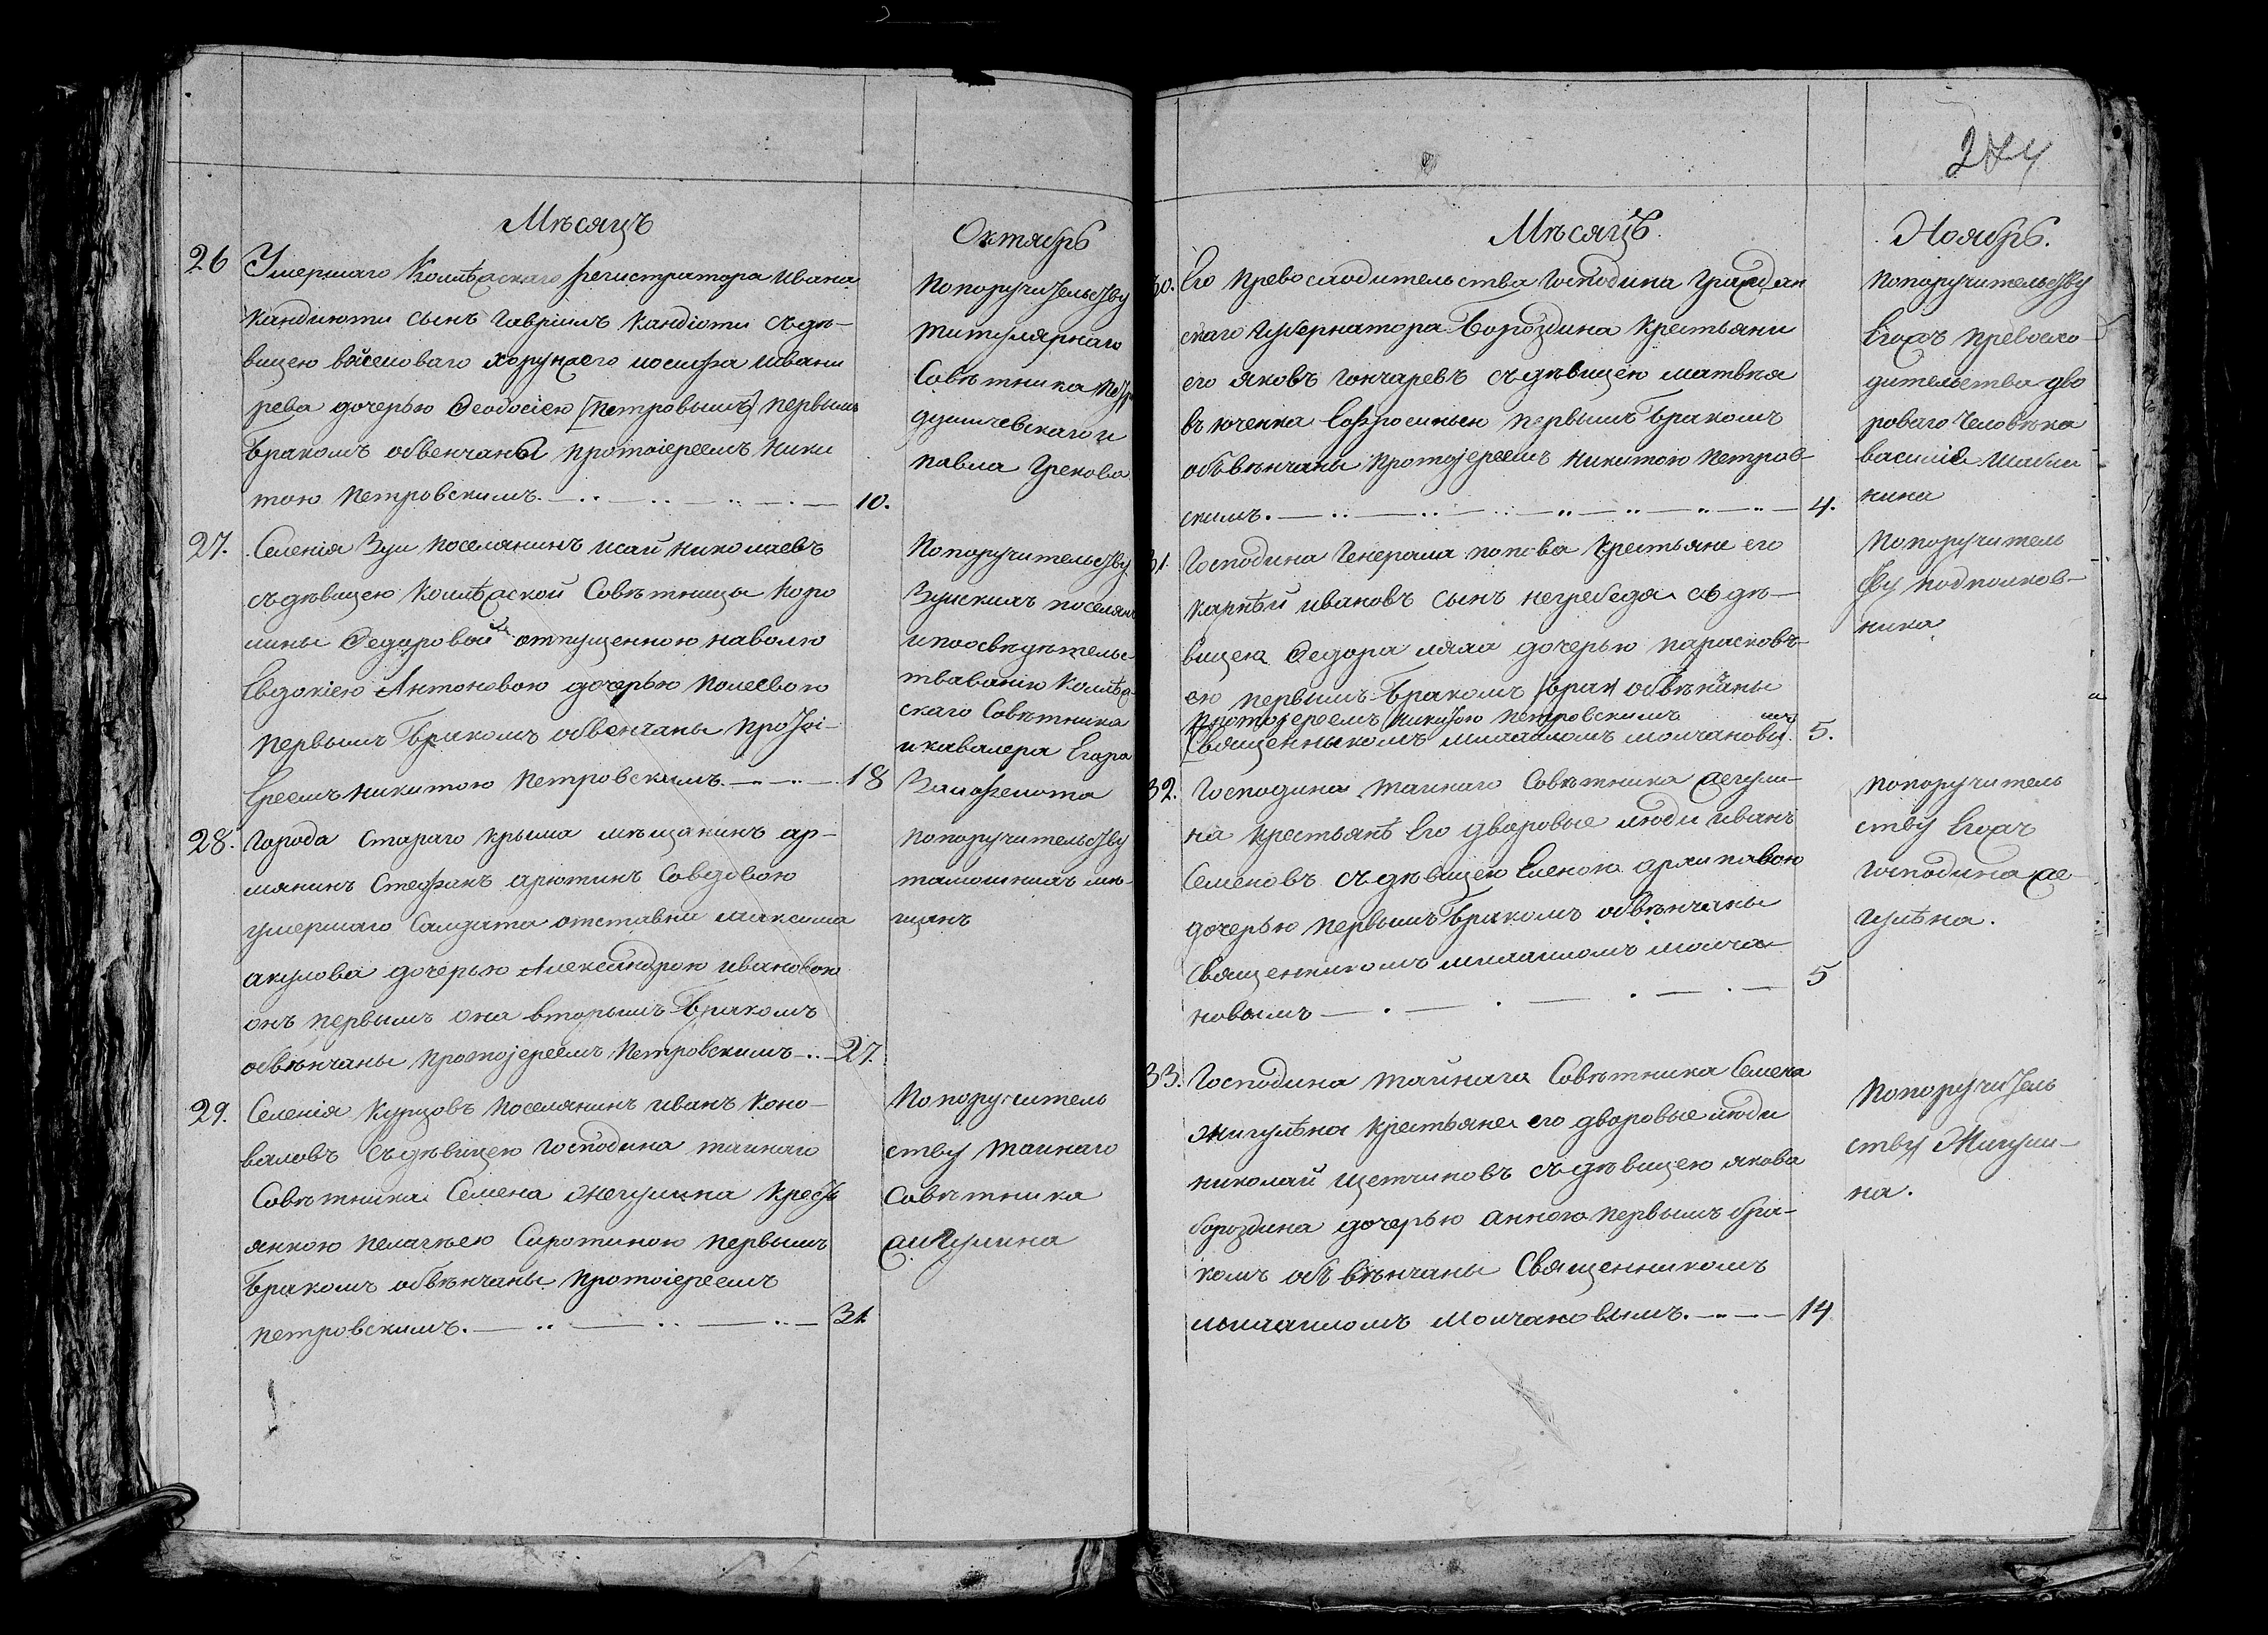 274
Мѣсяцъ
Октябрь
26 Умершаго Коллѣжскаго регистратора ивана
кандиоти сынъ гавріилъ кандіоти съ дѣ-
вицею войсковаго хорунжего иосифа ивани
рева дочерью Ѳеодосіею [петровымъ] первымъ
бракомъ обвенчаны протоіереемъ ники
тою петровскимъ. 10.
по поручительству
титулярнаго
Совѣтника
и
павла грекова
27. Селенія Зуи поселянинъ исай николаевъ
съ дѣвицею Коллѣжской Совѣтницы каро
лины Ѳедоровой отпущенною на волю
Евдокіею Антоновою дочерью полевою
первымъ бракомъ обвенчаны протоі-
Ереемъ никитою петровскимъ. 18
по поручительству
Зуискихъ поселянъ
и по освѣдѣтельс
твованію коллѣж
скаго Совѣтника
и кавалера Егора
28. города Стараго крыма мѣщанинъ ар-
мянинъ Стефанъ арютинъ Совдовою
умершаго Салдата отставни максима
акулова дочерью Александрою ивановою
онъ первымъ она вторымъ бракомъ
обвѣнчаны протоjереемъ петровскимъ 27.
по поручительству
тамошнихъ мѣ-
щанъ
29. Селенія Курцовъ поселянинъ иванъ коно-
валовъ съ дѣвицею господина таинаго
Совѣтника Семена жегулина кресть
янкою пелагѣею Сиротиною первымъ
бракомъ обвѣнчаны протоіереемъ
петровскимъ. 31.
по поручитель
ству таинаго
Совѣтника
жигулина
Мѣсяцъ
Ноябрь.
30. Его превосходительства господина граждан
скаго губернатора бороздина крестьяни
его яковъ гончаревъ съ дѣвицею матвѣя
въюченка Еофросиньею первымъ бракомъ
объвѣнчаны протоjереемъ никитою петров-
скимъ. 4.
по поручительству
Егожъ превосхо-
дительства дво
роваго человѣка
василія
31. господина генерала попова крестьяне его
карпѣй ивановъ сынъ негребеда съ дѣ-
вицею Ѳедора ляха дочерью парасковъ-
ею первымъ бракомъ обвѣнчаны
протоjереемъ никитою петровскимъ
Священникомъ михаиломъ молчановымъ 5.
по поручитель
ству подполков-
ника
32. господина таинаго Совѣтника жегули-
на крестьянѣ Его дворовые люди иванъ
Семеновъ съ дѣвицею Еленою архиповою
дочерью первымъ бракомъ обвѣнчаны
Священникомъ михаиломъ молча-
новымъ 5
по поручитель
ству Егожъ
господина же-
гулѣна.
33. господина тайнаго Совѣтника Семена
жигулѣна крестьяне его дворовые люди
николай щетчиновъ съ дѣвицею якова
бороздина дочерью анною первымъ бра-
комъ объ вѣнчаны Священникомъ
михаиломъ молчановымъ. 14
по поручитель
ству Жигули-
на.